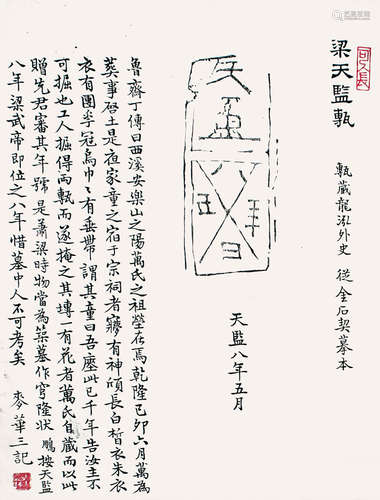 梁天監甎
甎藏龍泓外史 從金石契摹本
天監八年五月
魯齋丁傳曰西溪安樂山之陽萬氏之祖塋在焉乾隆己卯六月萬為
葬事啓土是夜家童之宿于宗祠者寢有神頎長白皙衣朱衣
衣有團冠烏巾巾有垂帶謂其童曰吾此已千年告汝主不
可掘也工人掘得兩甎而遂掩之其塼一有花者萬氏自藏而以此
贈先君審其年號是蕭梁時物當為築墓作穹隆狀 鵬按天監
八年梁武帝即位之八年惜墓中人不可考矣 麥華三記